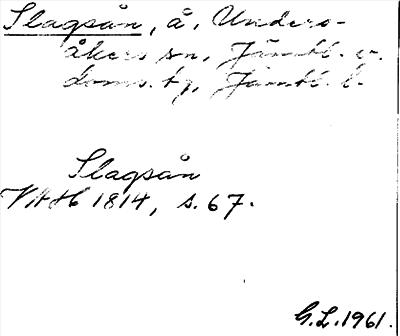 Slagsån, å, Unders-
åkers sn, Jämtl. v.
doms. tg, Jämtl. l.
Slagsån
VAH 1814, s. 67.
G.L. 1961.